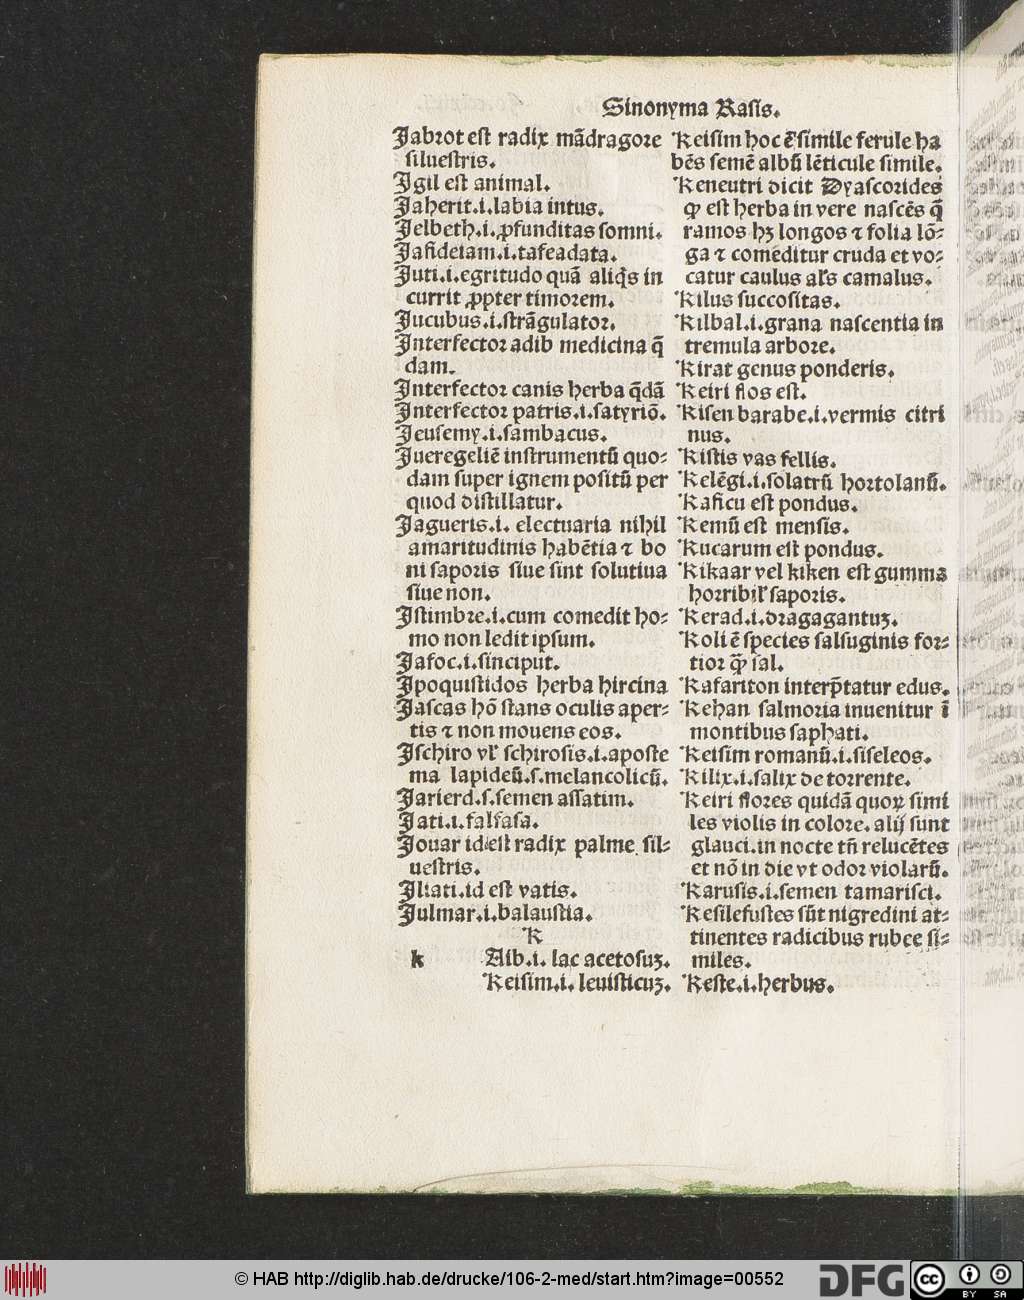 Sinonyma Rasis.
Jabrot est radix mādragore
siluestris.
Jgil est animal.
Jaherit.i.labia intus.
Jelbeth.i.ꝓfunditas somni.
Jafideiam.i.tafeadata.
Juti.i.egritudo quā aliq̄s in
currit ꝓpter timorem.
Jucubus.i.strāgulator.
Jnterfector adib medicina q̄
dam.
Jnterfector canis herba q̄dā
Jnterfector patris.i.satyriō.
Jeusemy.i.sambacus.
Jueregeliē instrumentū quo⸗
dam super ignem positū per
quod distillatur.
Jagueris.i. electuaria nihil
amaritudinis habētia ⁊ bo
ni saporis siue sint solutiua
siue non.
Jstimbre.i.cum comedit ho⸗
mo non ledit ipsum.
Jafoc.i.sinciput.
Jpoquistidos herba hircina
Jascas hō stans oculis aper⸗
tis ⁊ non mouens eos.
Jschiro vl' schirosis.i.aposte
ma lapideū.s.melancolicū.
Jarierd.s.semen assatim.
Jati.i.falfasa.
Jouar id est radix palme sil⸗
uestris.
Jliati.id est vatis.
Julmar.i.balaustia.
K
k Aib.i. lac acetosuꝫ.
Keisim.i. leuisticuꝫ.
Keisim hoc ē simile ferule ha
bēs semē albū lēticule simile.
Keneutri dicit Dyascorides
ꝙ est herba in vere nascēs q̄
ramos hꝫ longos ⁊ folia lō⸗
ga ⁊ comeditur cruda et vo⸗
catur caulus al's camalus.
Kilus succositas.
Kilbal.i.grana nascentia in
tremula arbore.
Kirat genus ponderis.
Keiri flos est.
Kisen barabe.i.vermis citri
nus.
Kistis vas fellis.
Kelēgi.i.solatrū hortolanū.
Kaficu est pondus.
Kemū est mensis.
Kucarum est pondus.
Kikaar vel kiken est gumma
horribil' saporis.
Kerad.i.dragagantuꝫ.
Koli ē species salsuginis for⸗
tior ꝙ sal.
Kafariton interp̄tatur edus.
Kehan salmoria inuenitur ī
montibus saphati.
Keisim romanū.i.siseleos.
Kilix.i.salix de torrente.
Keiri flores quidā quoꝝ simi
les violis in colore.alij sunt
glauci.in nocte tn̄ relucētes
et nō in die vt odor violarū.
Karusis.i.semen tamarisci.
Kesilefustes sūt nigredini at⸗
tinentes radicibus rubee si⸗
miles.
Keste.i.herbus.
© HAB http://diglib.hab.de/drucke/106-2-med/start.htm?image=00552
DFG
cc
BY SA